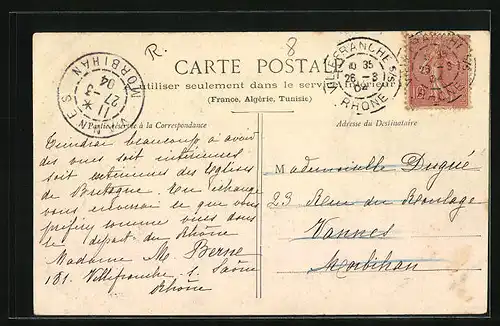 R.
8
CARTE POSTALE
utiliser seulement dans le service intérieur
(France, Algérie, Tunisie)
VILLEFRANCHE S/S
10 35
26 - 3
04
RHONE
VANNES
11
27 - 3
04
MORBIHAN
Partie réservée à la Correspondance
Adresse du Destinataire
Tiendrai beaucoup à avoir
des vues soit intérieures
soit extérieures des églises
de Bretagne. En échange
vous enverrai ce que vous
préférez comme vues dans
le départ. du Rhône
Madame M. Berne
181. Villefranche s. Saône
Rhône
Mademoiselle Dugué
23 Rue du Roulage
Vannes
Morbihan